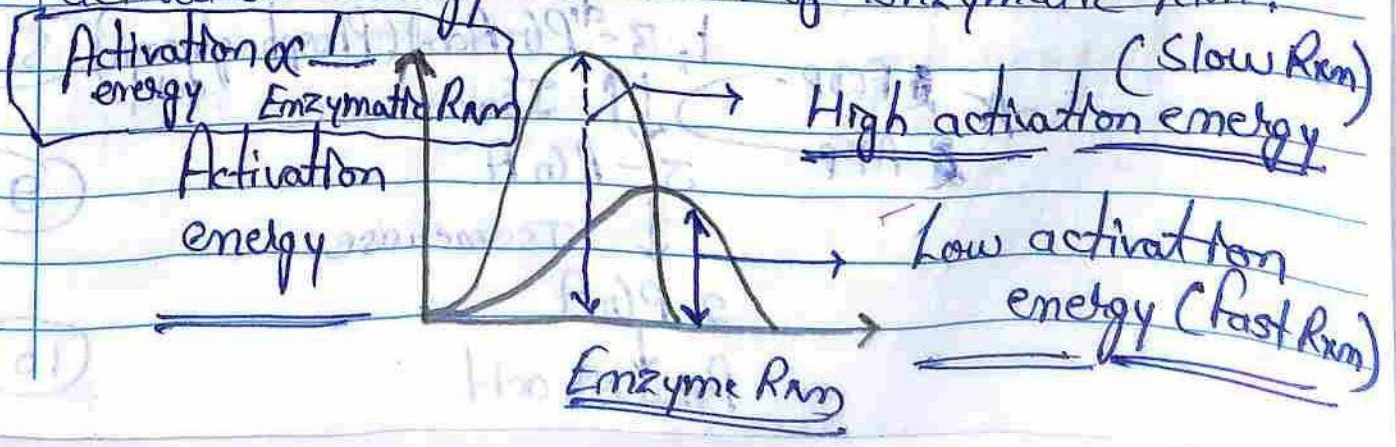 of Enzymatic Rxn.
Activation ∝ 1
energy Enzymatic Rxn
(Slow Rxn)
High activation energy
Activation
energy
Low activation
energy (fast Rxn)
Enzyme Rxn